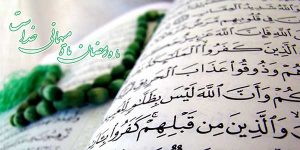 ماه رمضان ماه مهمانی خداست
فِي قُلُوبِهِم
فَإِنَّ اللَّهَ
الَّذِينَ كَفَرُوا
هُمْ وَذُوقُوا عَذَابَ الْحَرِيقِ
كُمْ وَأَنَّ اللَّهَ لَيْسَ بِظَلَّامٍ
وَالَّذِينَ مِن قَبْلِهِمْ كَفَرُوا